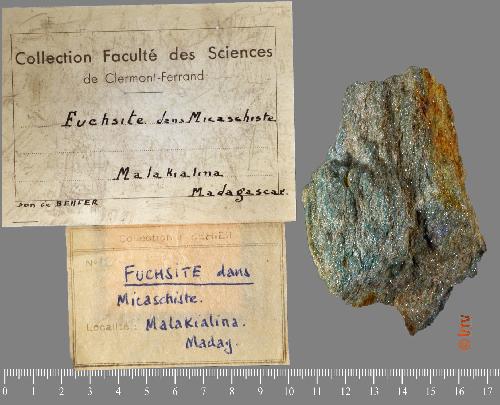 Collection Faculté des Sciences
de Clermont-Ferrand
Fuchsite dans Micaschiste
Malakialina
Madagascar.
Don Ge BEHIER
Collection
N°
FUCHSITE dans
Micaschiste.
Localité : Malakialina.
Madag.
©lrrv
0 1 2 3 4 5 6 7 8 9 10 11 12 13 14 15 16 17